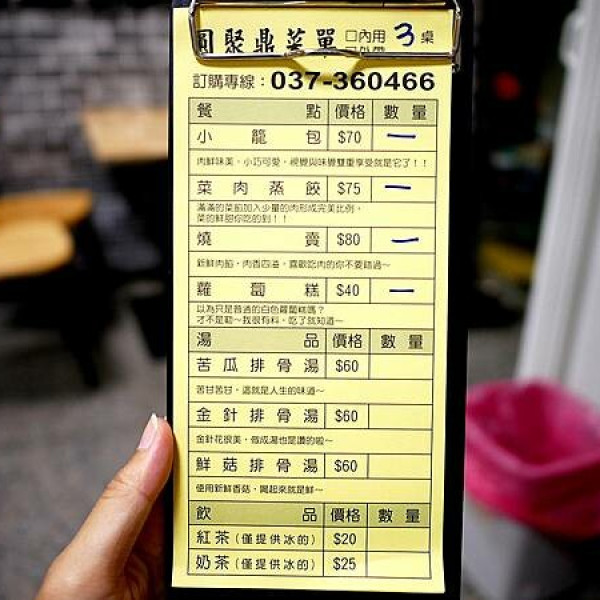 聚鼎菜單 □內用 3 桌
訂購專線：037-360466
餐點 價格 數量
小籠包 $70 一
肉鮮味美，小巧可愛，視覺與味覺雙重享受就是它了！！
菜肉蒸餃 $75 一
滿滿的菜餡加入少量的肉形成完美比例，
菜的鮮甜你吃的到！！
燒賣 $80 一
新鮮肉餡，肉香四溢，喜歡吃肉的你不要錯過～
蘿蔔糕 $40 一
以為只是普通的白色蘿蔔糕嗎？
才不是勒～我很有料，吃了就知道～
湯品 價格 數量
苦瓜排骨湯 $60
苦甘苦甘，這就是人生的味道～
金針排骨湯 $60
金針花很美，做成湯也是讚的啦～
鮮菇排骨湯 $60
使用新鮮香菇，喝起來就是鮮～
飲品 價格 數量
紅茶(僅提供冰的) $20
奶茶(僅提供冰的) $25